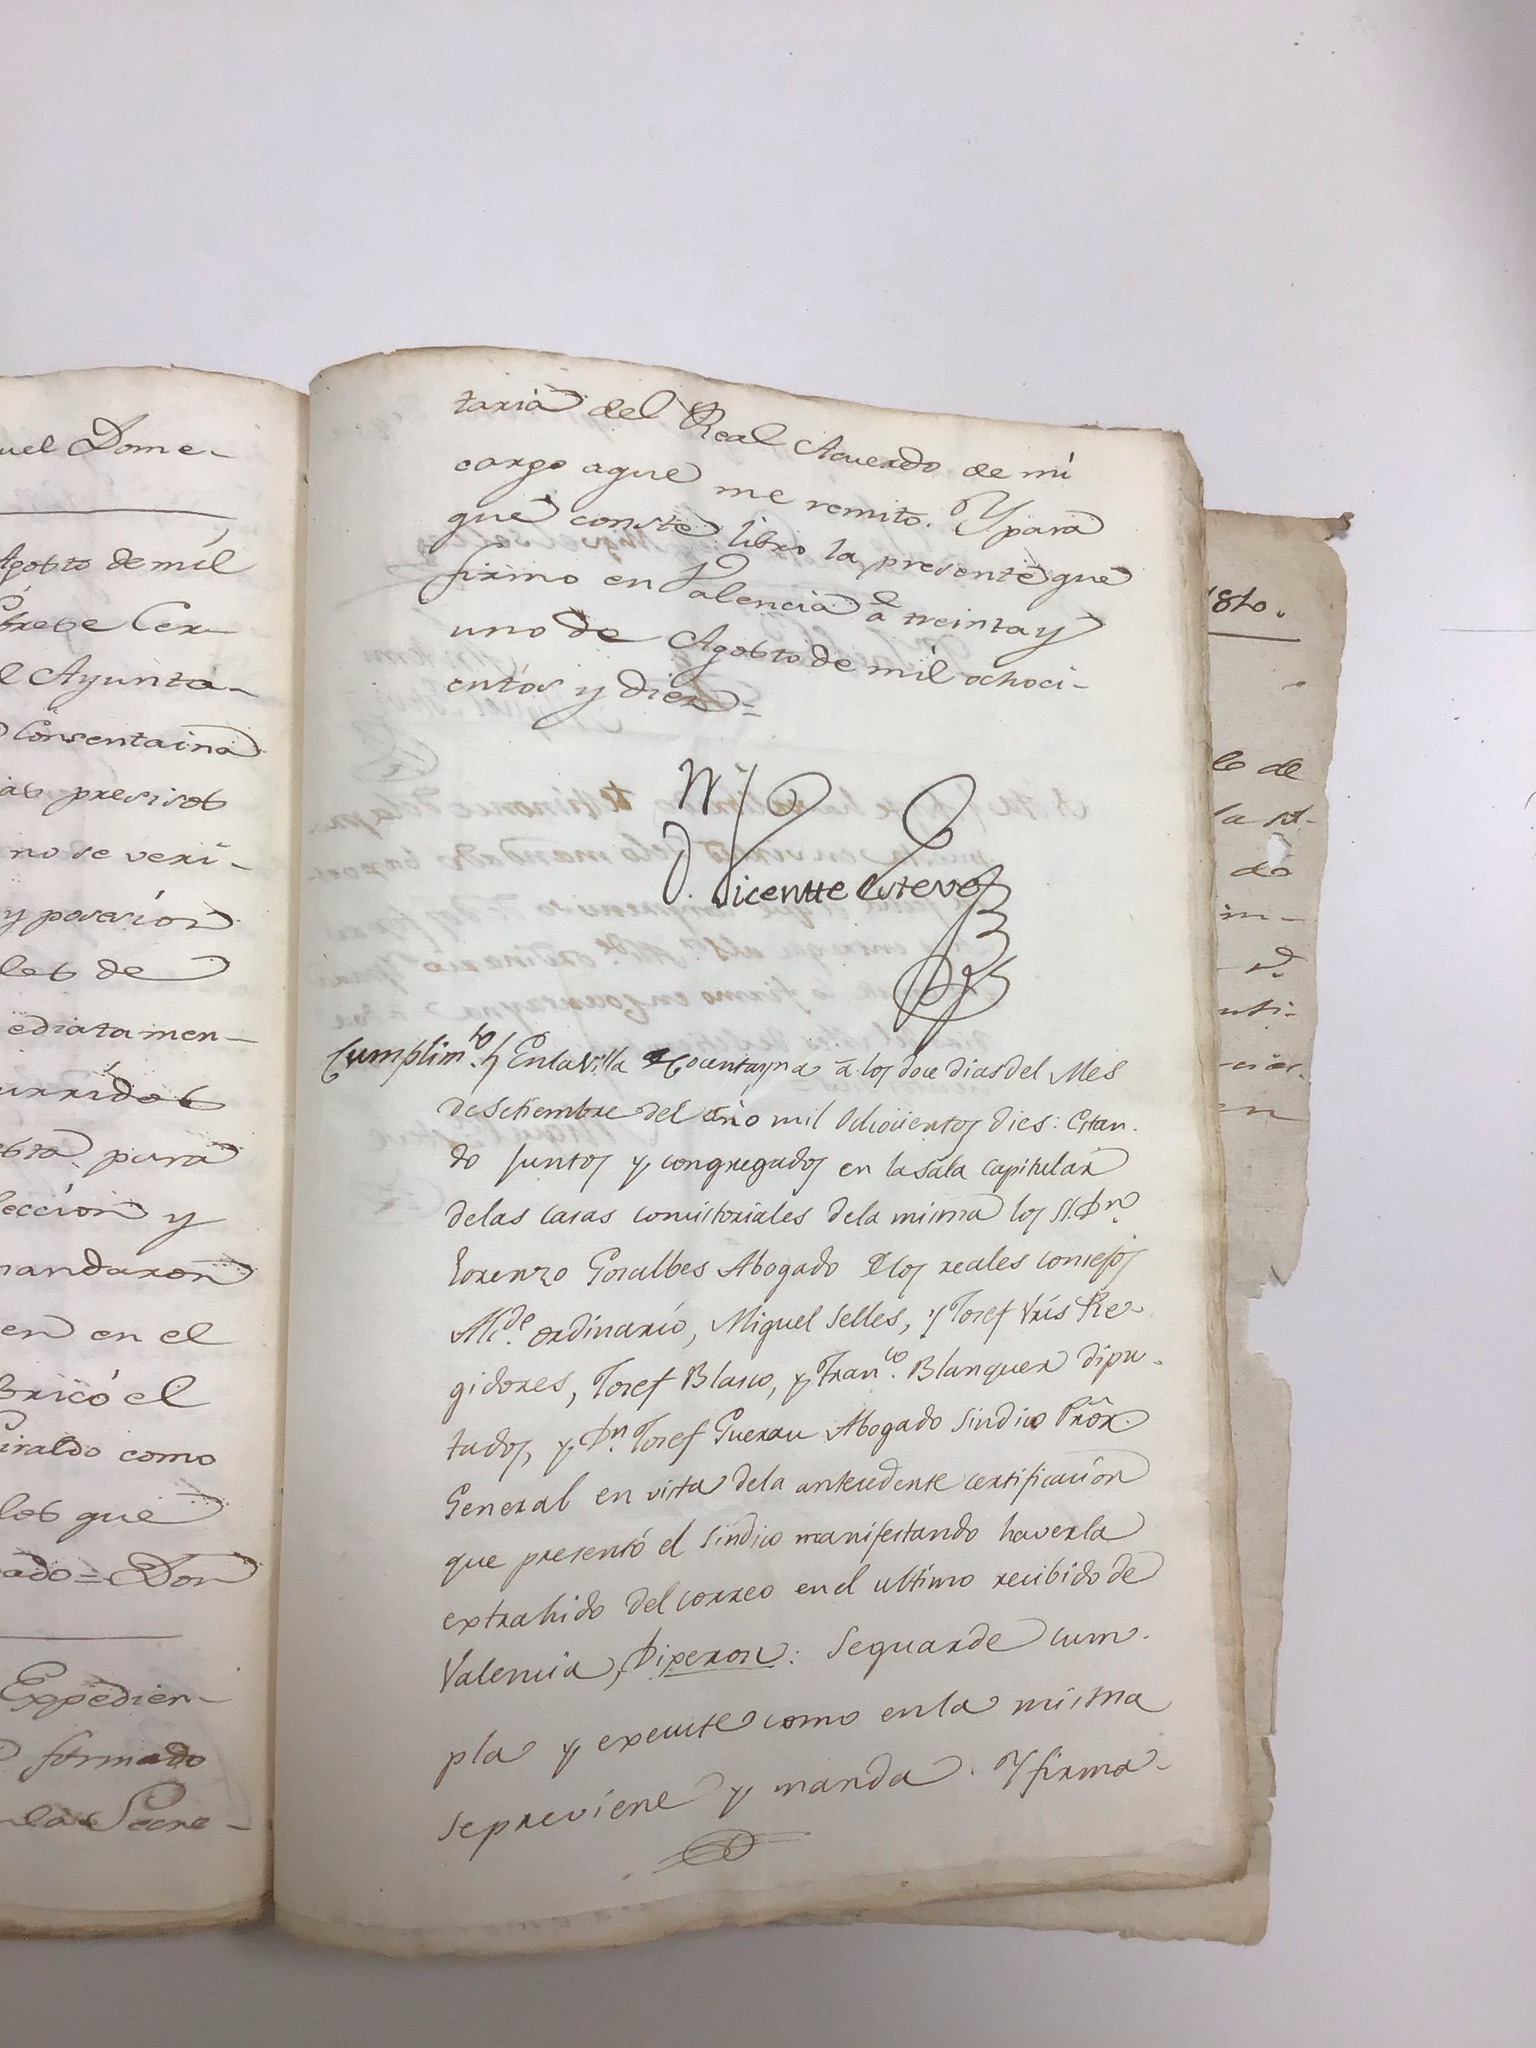 uel Dome-
Agosto de mil
Prese Cer-
l Ayunta-
Consentaina
as presisos
no se veri-
y posesion
les de
ediatamen-
urridos
sta para
leccion y
mandaron
en en el
bricó el
Giraldo como
los que
ado = Don
Expedien-
formado
en la Secre-
taria del Real Acuerdo de mi
cargo aque me remito. Y para
que conste libro la presente que
firmo en Valencia á treinta y
uno de Agosto de mil ochoci-
entos y diez =
D. Vicentte Esteve
Cumplim.to En la Villa de Cocentayna á los doce dias del Mes
de Setiembre del año mil Ochocientos Dies: Estan-
do Juntos y congregados en la sala capitular
delas casas consistoriales dela misma los SS. Dn.
Lorenzo Gosalbes Abogado de los reales consejos
Alc.de ordinario, Miguel Selles, y Josef Vris Re-
gidores, Josef Blasco, y Fran.co Blanquer dipu-
tados, y Dn. Josef Guerau Abogado Sindico Pror.
General en vista dela antecedente certificacion
que presentó el Sindico manifestando haverla
extrahido del correo en el ultimo recibido de
Valencia, Dixeron: Se guarde cum-
pla y execute como en la misma
se previene y manda. Y firma-
1810.
lo de
la
do
in-
en